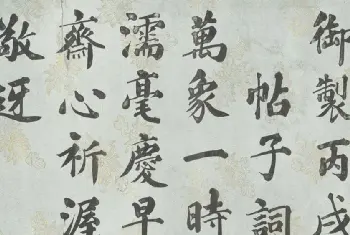 御製丙戌
帖子詞
萬象一時
濡毫慶早
齋心祈渥
敬迓